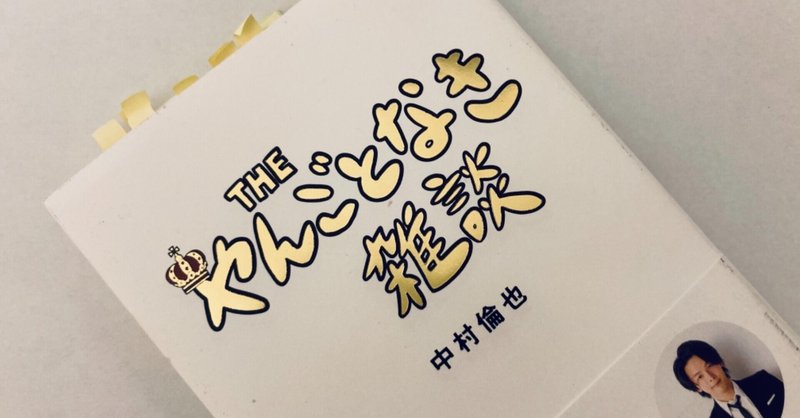 THE
やんごとなき
雑談
中村倫也